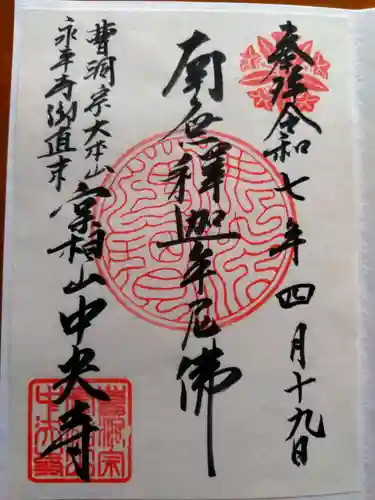 奉拝 令和七年四月十九日
南無釋迦牟尼佛
曹洞宗大本山
永平寺御直末
宗柏山中央寺